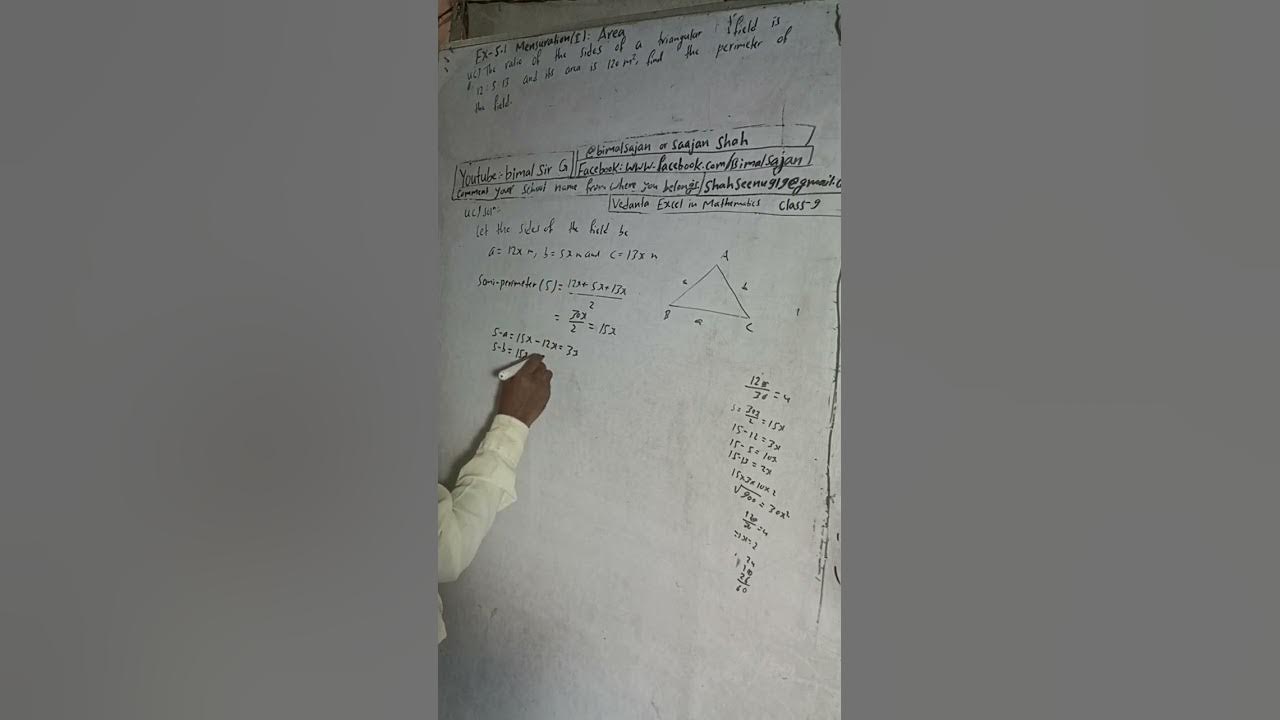 Ex-5.1 Mensuration(I): Area
4.c) The ratio of the sides of a triangular field is
12:5:13 and its area is 120 m², find the perimeter of
the field.
Youtube:- bimal Sir G
@bimalsajan or Saajan Shah
Facebook: www.facebook.com/Bimalsajan
Comment your school name from where you belongs/shahseenu919@gmail.c
Vedanta Excel in Mathematics class-9
4.c) Solⁿ:-
Let the sides of the field be
a = 12x m, b = 5x m and c = 13x m
Semi-perimeter (S) = 12x + 5x + 13x
2
= 30x
2
= 15x
S-a = 15x - 12x = 3x
S-b = 15x
A
c
b
B
a
C
120
30
= 4
S = 30x
2
= 15x
15-12 = 3x
15-5 = 10x
15-13 = 2x
15x3x10x2
√900 = 30x²
120
30
= 4
=> x = 2
24
10
26
60